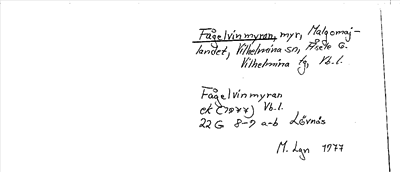 Fågelvinmyran, myr, Malgomaj-
landet, Vilhelmina sn, Åsele
Vilhelmina fg, Vb.l.
Fågelvinmyran
ek (1977) Vb.l.
22 G 8-9 a-b Lövnäs
M. Lgn 1977